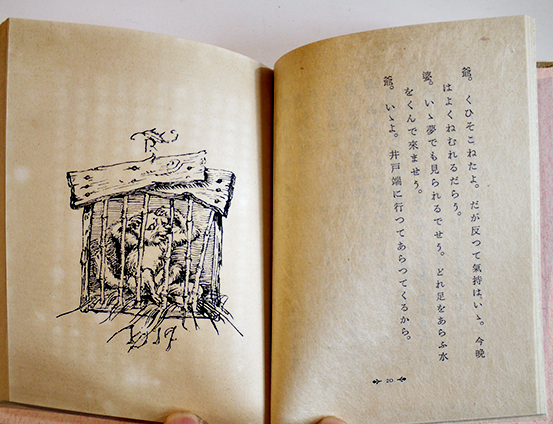 爺。くひそこねたよ。だが反つて氣持はいゝ。今晩
はよくねむれるだらう。
婆。いゝ夢でも見られるでせう。どれ足をあらふ水
をくんで來ませう。
爺。いゝよ。井戸端に行つてあらつてくるから。
20